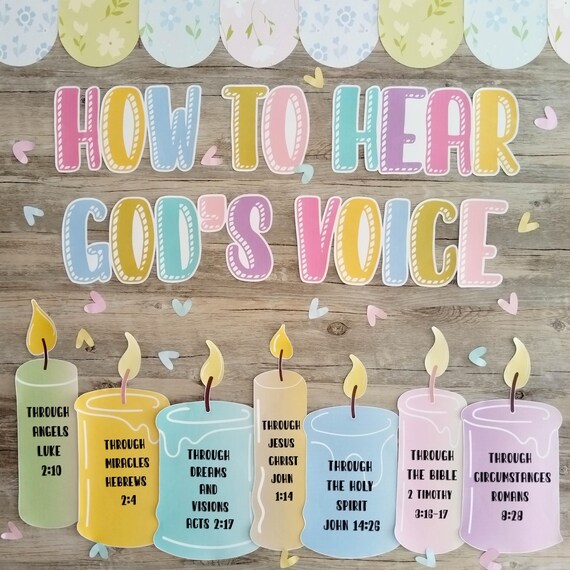 HOW TO HEAR
GOD'S VOICE
THROUGH
ANGELS
LUKE
2:10
THROUGH
MIRACLES
HEBREWS
2:4
THROUGH
DREAMS
AND
VISIONS
ACTS 2:17
THROUGH
JESUS
CHRIST
JOHN
1:14
THROUGH
THE HOLY
SPIRIT
JOHN 14:26
THROUGH
THE BIBLE
2 TIMOTHY
3:16-17
THROUGH
CIRCUMSTANCES
ROMANS
8:28